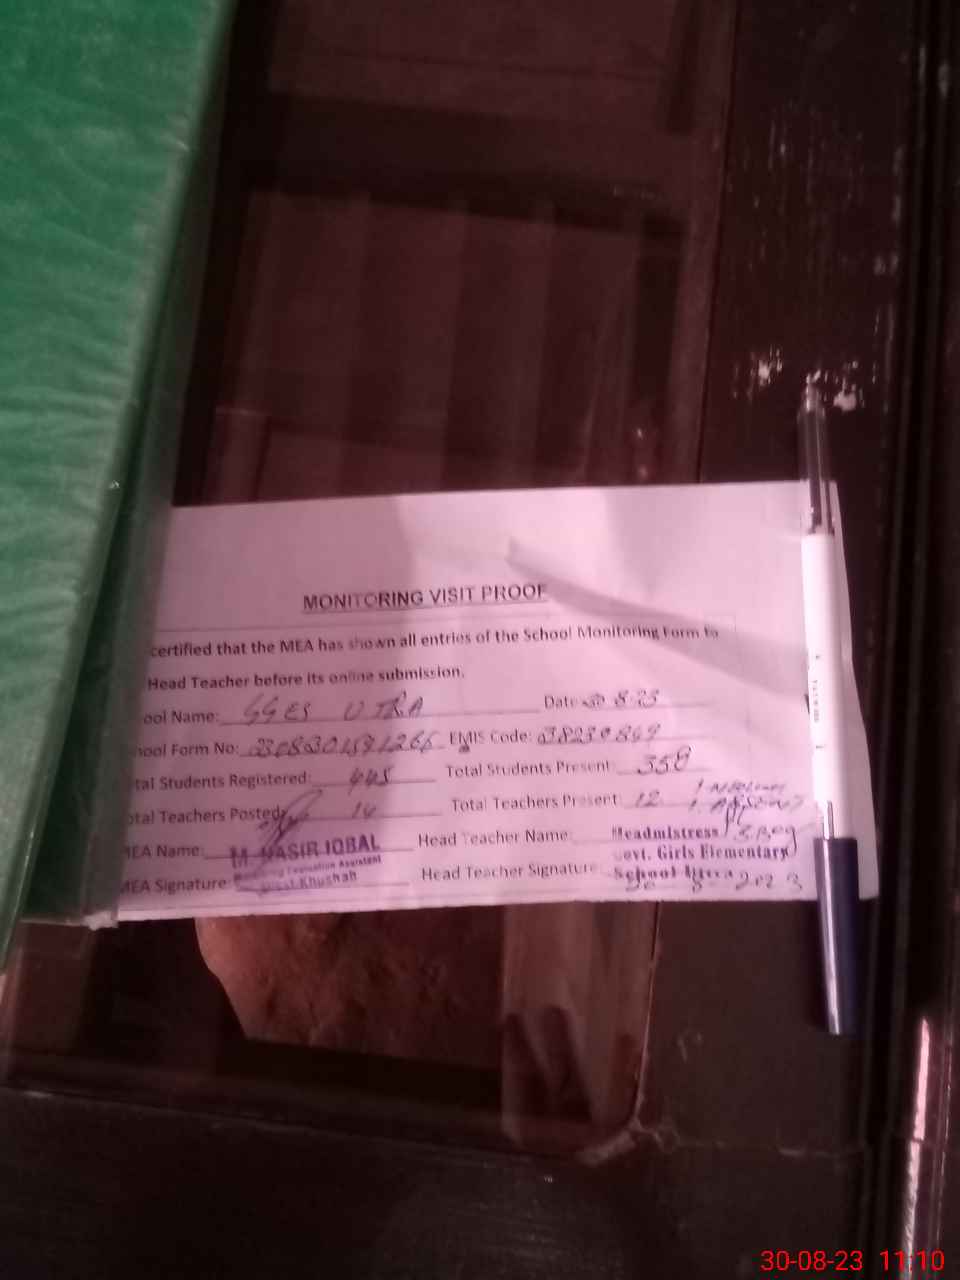 MONITORING VISIT PROOF
certified that the MEA has shown all entries of the School Monitoring Form to
Head Teacher before its online submission.
ool Name: GGES UTRA Date 30-8-23
hool Form No: EMIS Code: 38230869
tal Students Registered: 445 Total Students Present: 350
otal Teachers Posted: 14 Total Teachers Present: 12
MEA Name: M. NASIR IQBAL Head Teacher Name: Headmistress
Monitoring Evaluation Assistant Govt. Girls Elementary
MEA Signature: Distt Khushab Head Teacher Signature: School Utra
30-8-2023
30-08-23 11:10